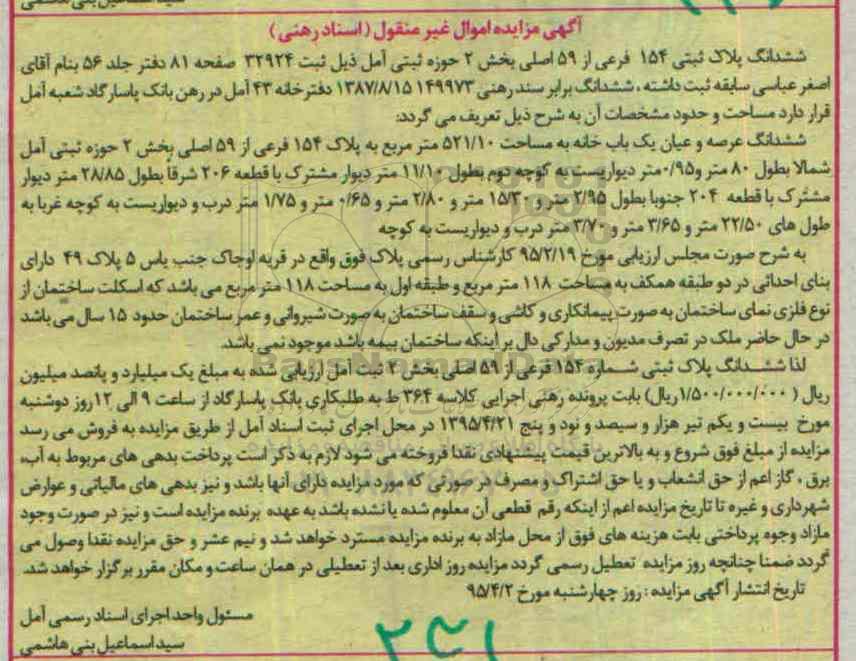 سید اسماعیل بنی هاشمی
آگهی مزایده اموال غیر منقول (اسناد رهنی)
ششدانگ پلاک ثبتی ۱۵۴ فرعی از ۵۹ اصلی بخش ۲ حوزه ثبتی آمل ذیل ثبت ۳۲۹۲۴ صفحه ۸۱ دفتر جلد ۵۶ بنام آقای
اصغر عباسی سابقه ثبت داشته ، ششدانگ برابر سند رهنی ۱۴۹۹۷۳ ۱۳۸۷/۸/۱۵ دفترخانه ۴۳ آمل در رهن بانک پاسارگاد شعبه آمل
قرار دارد مساحت و حدود مشخصات آن به شرح ذیل تعریف می گردد:
ششدانگ عرصه و عیان یک باب خانه به مساحت ۵۲۱/۱۰ متر مربع به پلاک ۱۵۴ فرعی از ۵۹ اصلی بخش ۲ حوزه ثبتی آمل
شمالا بطول ۸۰ متر و۰/۹۵متر دیواریست به کوچه دوم بطول ۱۱/۱۰ متر دیوار مشترک با قطعه ۲۰۶ شرقاً بطول ۲۸/۸۵ متر دیوار
مشترک با قطعه ۲۰۴ جنوبا بطول ۲/۹۵ متر و ۱۵/۳۰ متر و ۲/۸۰ متر و ۰/۶۵ متر و ۱/۷۵ متر درب و دیواریست به کوچه غربا به
طول های ۲۲/۵۰ متر و ۳/۶۵ متر و ۳/۷۰ متر درب و دیواریست به کوچه
به شرح صورت مجلس ارزیابی مورخ ۹۵/۲/۱۹ کارشناس رسمی پلاک فوق واقع در قریه اوجاک جنب یاس ۵ پلاک ۴۹ دارای
بنای احداثی در دو طبقه همکف به مساحت ۱۱۸ متر مربع و طبقه اول به مساحت ۱۱۸ متر مربع می باشد که اسکلت ساختمان از
نوع فلزی نمای ساختمان به صورت پیمانکاری و کاشی و سقف ساختمان به صورت شیروانی و عمر ساختمان حدود ۱۵ سال می باشد
در حال حاضر ملک در تصرف مدیون و مدارکی دال بر اینکه ساختمان بیمه باشد موجود نمی باشد.
لذا ششدانگ پلاک ثبتی شماره ۱۵۴ فرعی از ۵۹ اصلی بخش ۲ ثبت آمل ارزیابی شده به مبلغ یک میلیارد و پانصد میلیون
ریال ( ۱/۵۰۰/۰۰۰/۰۰۰ریال) بابت پرونده رهنی اجرایی کلاسه ۳۶۴ ط به طلبکاری بانک پاسارگاد از ساعت ۹ الی ۱۲ روز دوشنبه
مورخ بیست و یکم تیر هزار و سیصد و نود و پنج ۱۳۹۵/۴/۲۱ در محل اجرای ثبت اسناد آمل از طریق مزایده به فروش می رسد
مزایده از مبلغ فوق شروع و به بالاترین قیمت پیشنهادی نقدا فروخته می شود لازم به ذکر است پرداخت بدهی های مربوط به آب،
برق ، گاز اعم از حق انشعاب و یا حق اشتراک و مصرف در صورتی که مورد مزایده دارای آنها باشد و نیز بدهی های مالیاتی و عوارض
شهرداری و غیره تا تاریخ مزایده اعم از اینکه رقم قطعی آن معلوم شده یا نشده باشد به عهده برنده مزایده است و نیز در صورت وجود
مازاد وجوه پرداختی بابت هزینه های فوق از محل مازاد به برنده مزایده مسترد خواهد شد و نیم عشر و حق مزایده نقدا وصول می
گردد ضمنا چنانچه روز مزایده تعطیل رسمی گردد مزایده روز اداری بعد از تعطیلی در همان ساعت و مکان مقرر برگزار خواهد شد.
تاریخ انتشار آگهی مزایده : روز چهارشنبه مورخ ۹۵/۴/۲
مسئول واحد اجرای اسناد رسمی آمل
سید اسماعیل بنی هاشمی